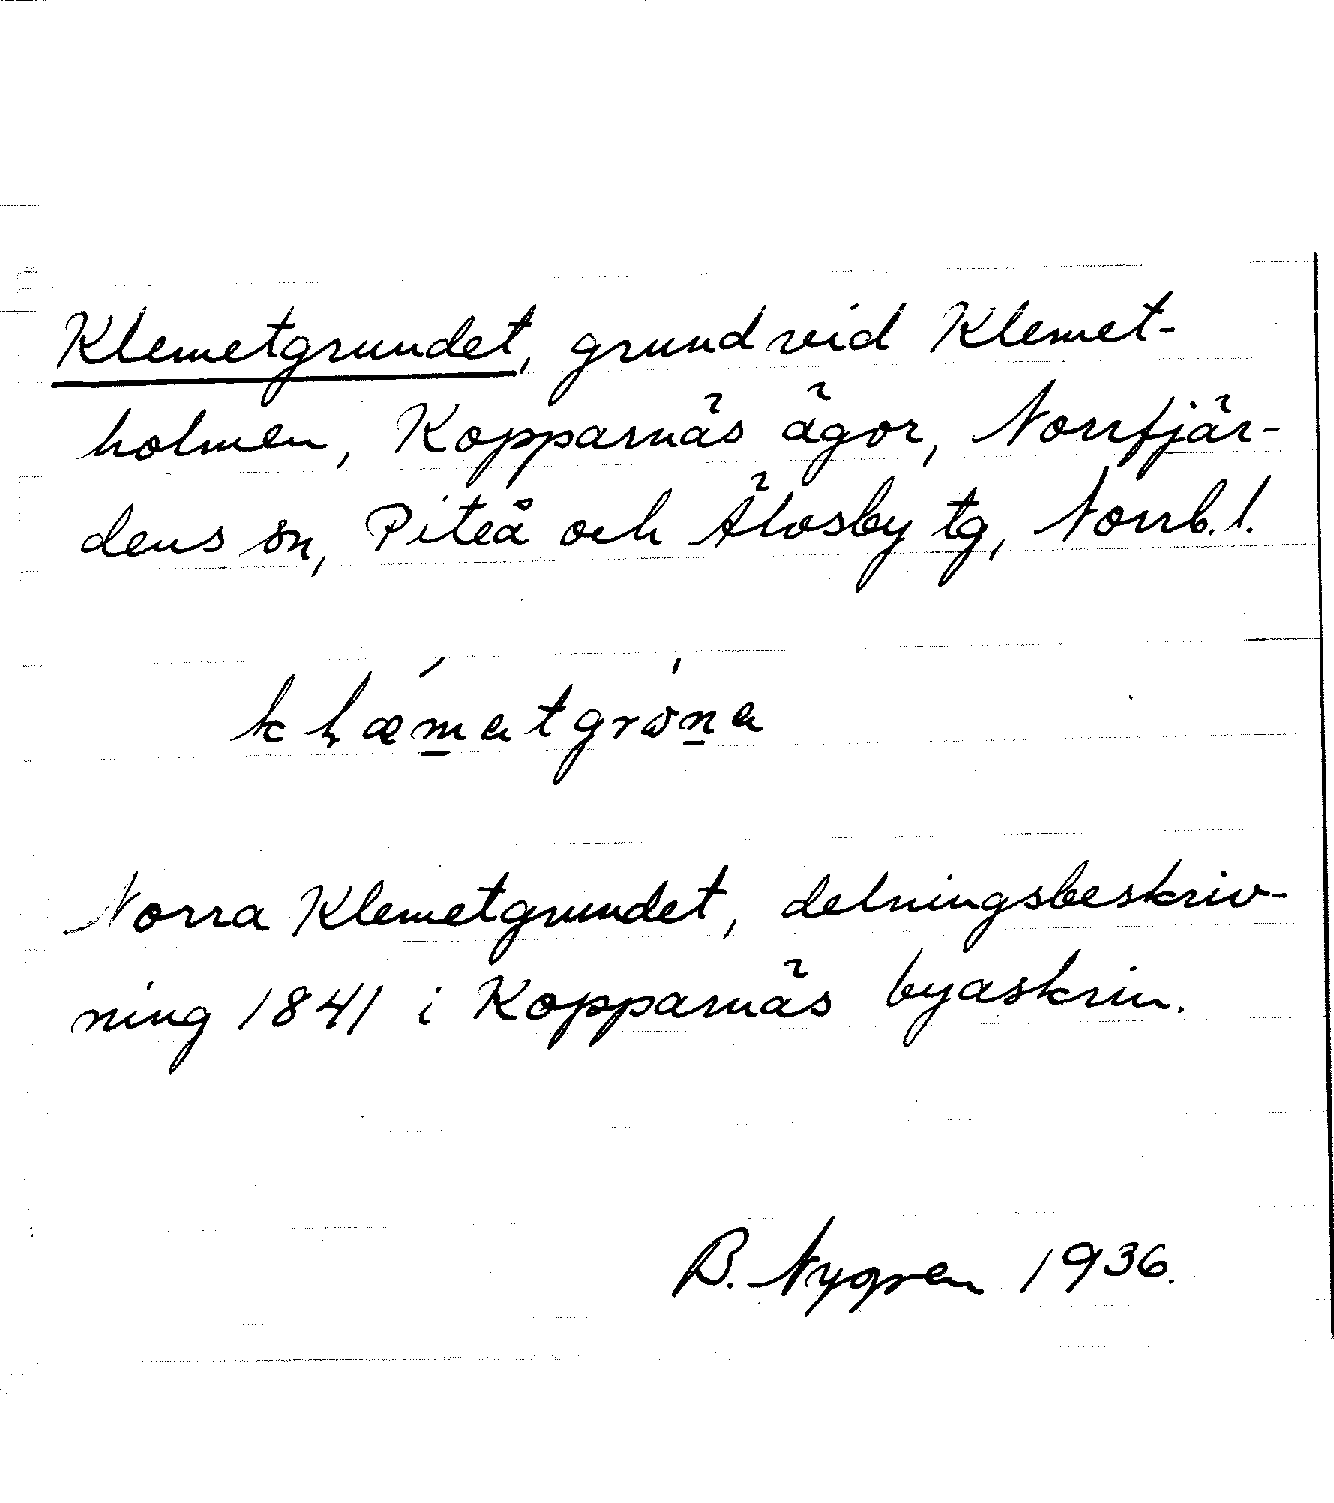 Klemetgrundet, grund vid Klemet-
holmen, Kopparnäs ägor, Norrfjär-
dens sn, Piteå och Älvsby tg, Norrb. l.
Norra Klemetgrundet, delningsbeskriv-
ning 1841 i Kopparnäs byaskrin.
B. Nygren 1936.